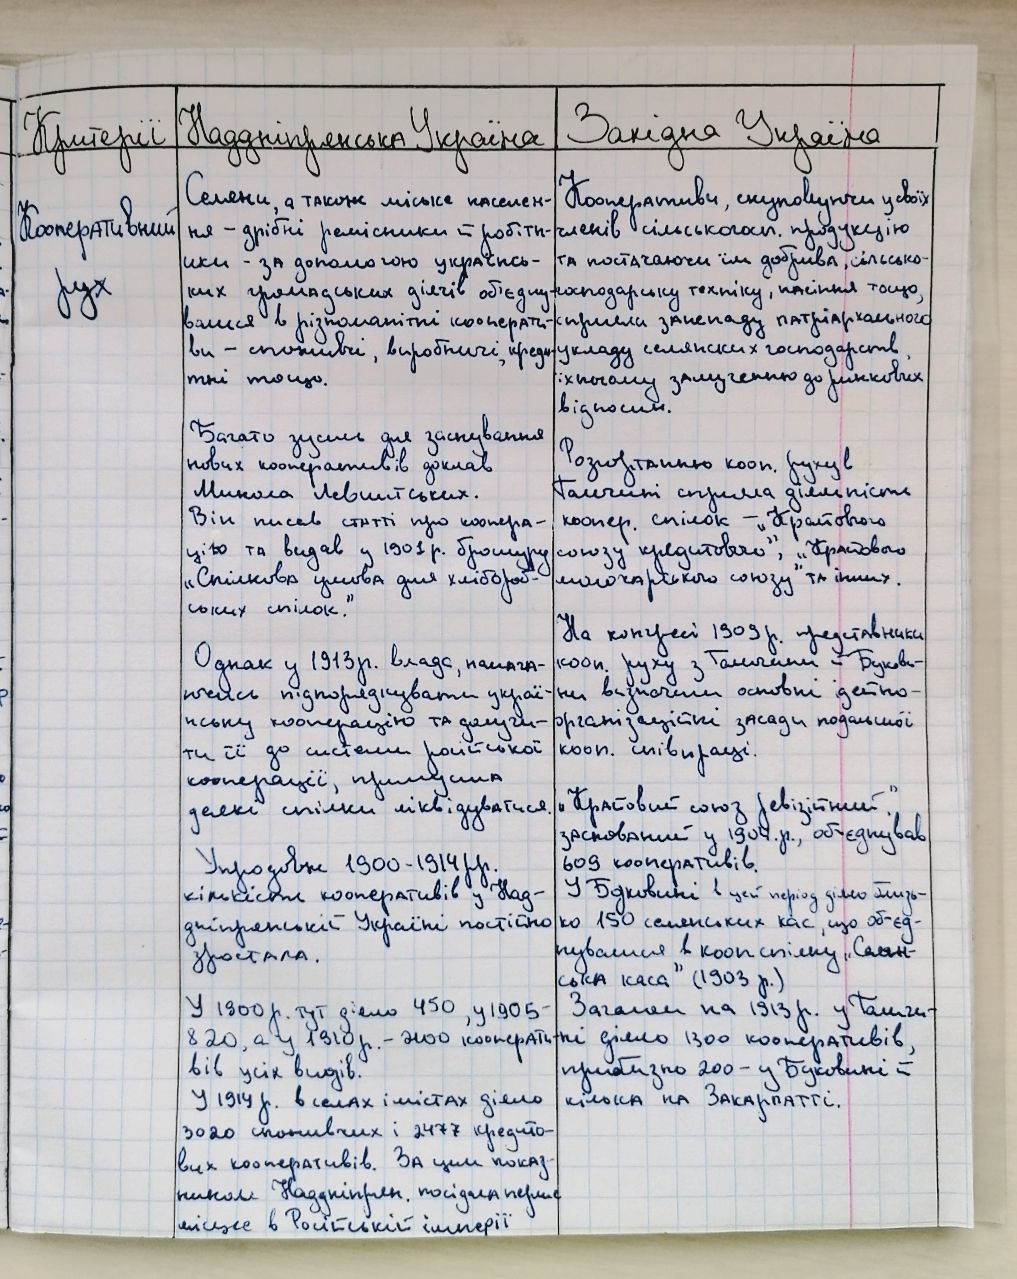 Критерії
Наддніпрянська Україна
Західна Україна
Кооперативний
рух
Селяни, а також міське населен-
ня – дрібні ремісники й робітн-
ики – за допомогою українсь-
ких громадських діячів об'єдну-
валися в різноманітні кооперати-
ви – споживчі, виробничі, креди-
тні тощо.
Багато зусиль для заснування
нових кооперативів доклав
Микола Левитських.
Він писав статті про коопера-
цію та видав у 1901 р. брошуру
„Спілкова умова для хлібороб-
ських спілок."
Однак у 1913 р. влада, намага-
ючись підпорядкувати украї-
нську кооперацію та долучи-
ти її до системи російської
кооперації, примусила
деякі спілки ліквідуватися.
Упродовж 1900-1914 рр.
кількість кооперативів у Над-
дніпрянській Україні постійно
зростала.
У 1900 р. тут діяло 450, у 1905-
820, а у 1910 р. – 2100 кооперати-
вів усіх видів.
У 1914 р. в селах і містах діяло
3020 споживчих і 2477 кредито-
вих кооперативів. За цим показ-
ником Наддніпрян. посідала перше
місце в Російській імперії
Кооперативи, скуповуючи у своїх
членів сільськогосп. продукцію
та постачаючи їм добрива, сільсько-
господарську техніку, насіння тощо,
сприяли занепаду патріархального
укладу селянских господарств,
їхньому залученню до ринкових
відносин.
Розгортанню кооп. руху в
Галичині сприяла діяльність
коопер. спілок – „Крайового
союзу кредитового", „Крайового
молочарського союзу" та інших.
На конгресі 1909 р. представники
кооп. руху з Галичини й Букови-
ни визначили основні ідейно-
організаційні засади подальшої
кооп. співпраці.
„Крайовий союз ревізійний",
заснований у 1904 р., об'єднував
609 кооперативів.
У Буковині в цей період діяло близь-
ко 150 селянських кас, що об'єд-
нувалися в кооп спілку „Селян-
ська каса" (1903 р.)
Загалом на 1913 р. у Галичи-
ні діяло 1300 кооперативів,
приблизно 200 – у Буковині й
кілька на Закарпатті.